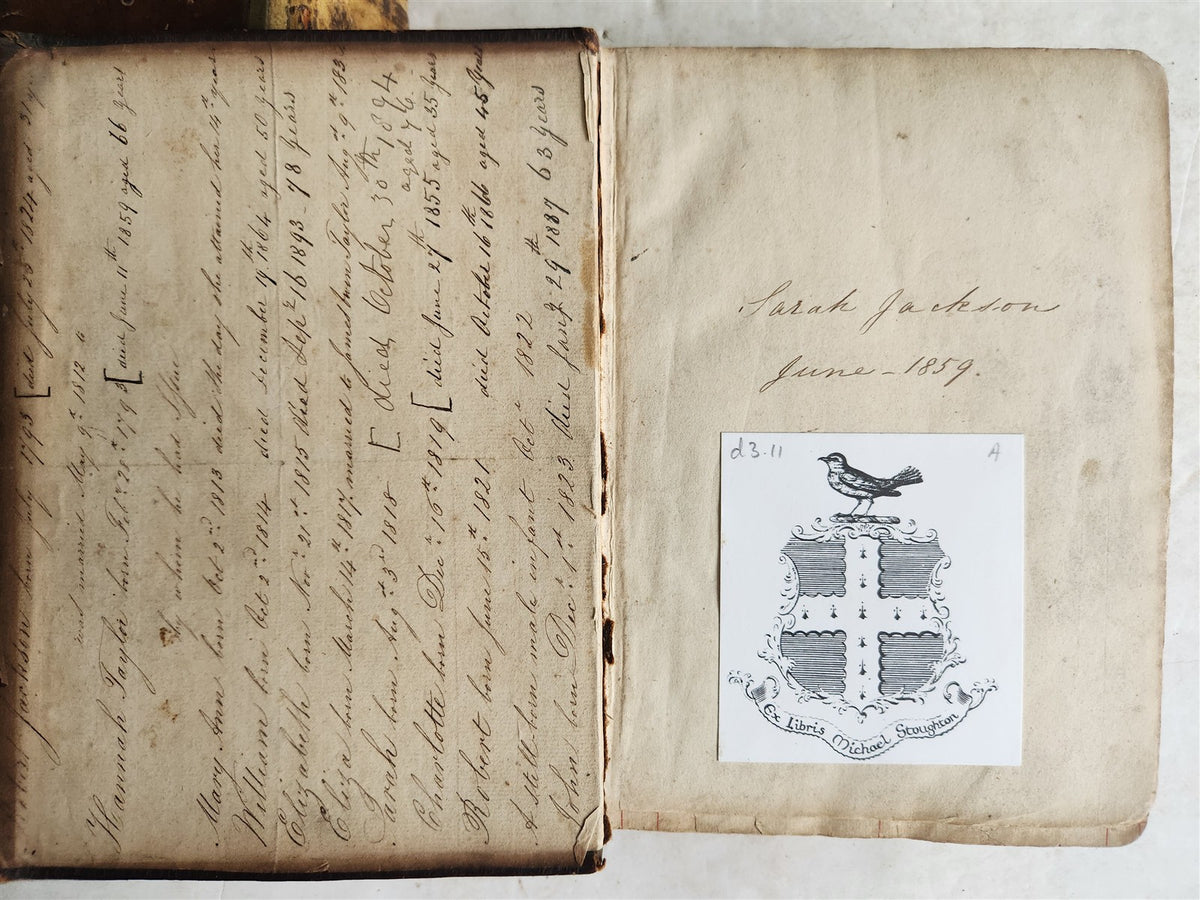 Jackson born July 1793 [died July 25th 1824 aged 31
was married May 9th 1812 to
Hannah Taylor born Feb. 28th 1793 [died June 11th 1859 aged 66 years
by whom he had Issue
Mary Ann born Oct 2nd 1813 died the day she attained her 14th year
William born Oct 2nd 1814 died December 7th 1864 aged 50 years
Elizabeth born Novr 21st 1815 Died Sepr 16 1893 - 78 years
Eliza born March 14th 1817. married to James Irwin Taylor Augst 9th 183
Sarah born Augst 3rd 1818 [Died October 30th 1894
aged 76.
Charlotte born Decr 16th 1819 [died June 27th 1855 aged 35 years
Robert born June 15th 1821. died October 16th 1866 aged 45 years
A still-born male infant Octr 1822
John born Decr 1st 1823 died Jany 29th 1887 63 years
Sarah Jackson
June - 1859.
d3.11 A
Ex Libris Michael Stoughton